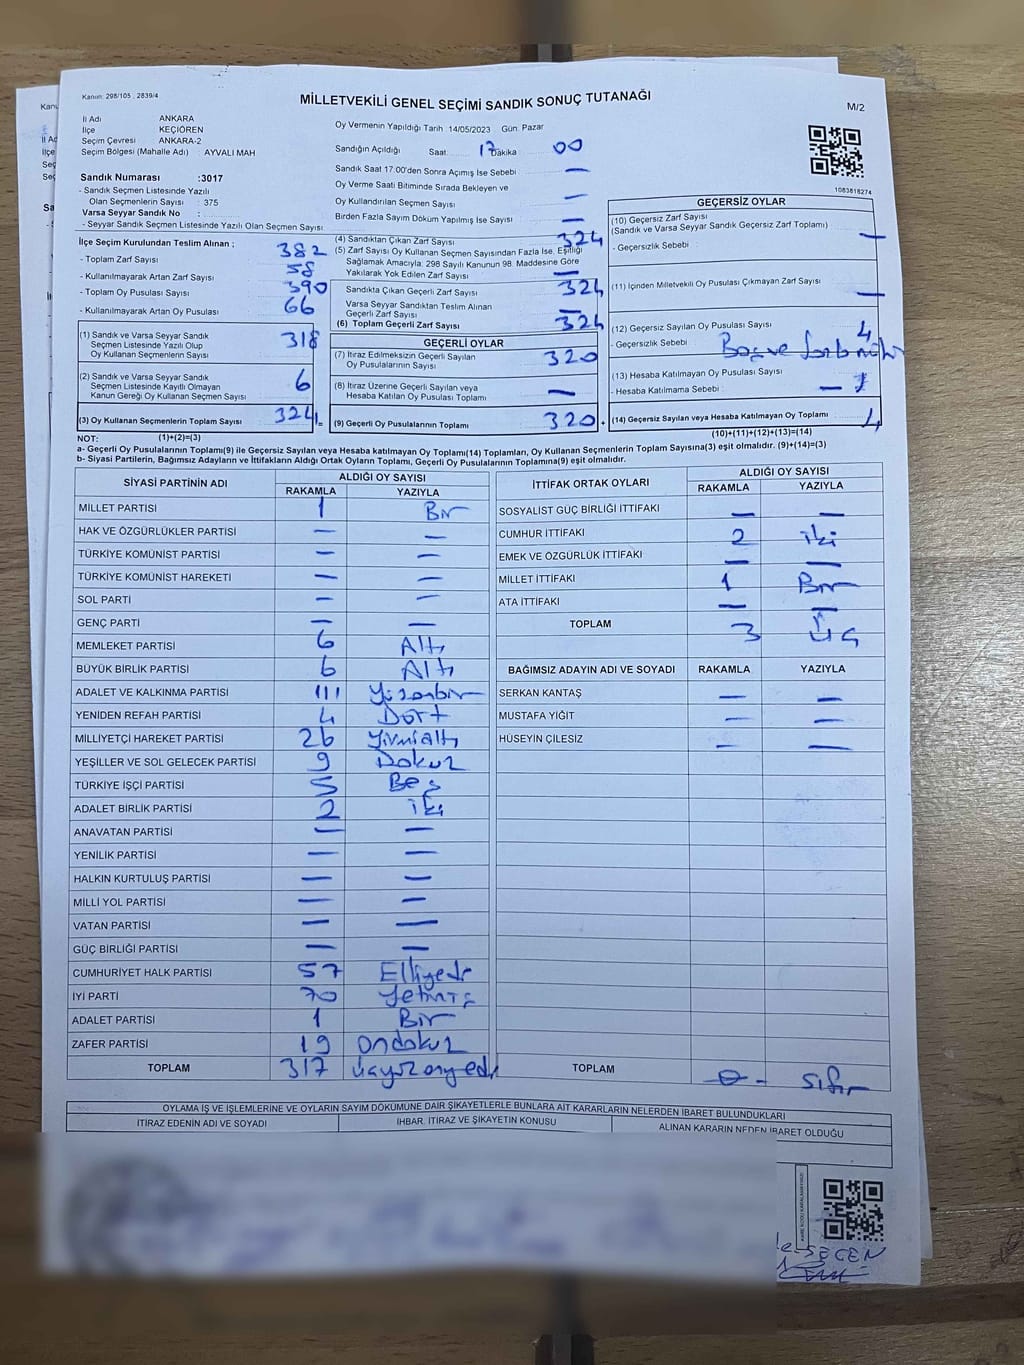 Kanun: 298/105 , 2839/4
MİLLETVEKİLİ GENEL SEÇİMİ SANDIK SONUÇ TUTANAĞI
M/2
İl Adı ANKARA
İlçe KEÇİÖREN
Seçim Çevresi ANKARA-2
Seçim Bölgesi (Mahalle Adı) AYVALI MAH
Oy Vermenin Yapıldığı Tarih 14/05/2023 Gün: Pazar
Sandığın Açıldığı Saat 17 Dakika 00
Sandık Saat 17:00'den Sonra Açımış İse Sebebi : —
Oy Verme Saati Bitiminde Sırada Bekleyen ve
Oy Kullandırılan Seçmen Sayısı —
Birden Fazla Sayım Döküm Yapılmış İse Sayısı —
1083818274
Sandık Numarası :3017
- Sandık Seçmen Listesinde Yazılı
Olan Seçmenlerin Sayısı : 375
Varsa Seyyar Sandık No :
- Seyyar Sandık Seçmen Listesinde Yazılı Olan Seçmen Sayısı
İlçe Seçim Kurulundan Teslim Alınan ;
- Toplam Zarf Sayısı 382
- Kullanılmayarak Artan Zarf Sayısı 58
- Toplam Oy Pusulası Sayısı 390
- Kullanılmayarak Artan Oy Pusulası 66
(1) Sandık ve Varsa Seyyar Sandık
Seçmen Listesinde Yazılı Olup
Oy Kullanan Seçmenlerin Sayısı 318
(2) Sandık ve Varsa Seyyar Sandık
Seçmen Listesinde Kayıtlı Olmayan
Kanun Gereği Oy Kullanan Seçmen Sayısı 6
(3) Oy Kullanan Seçmenlerin Toplam Sayısı 324 =
(4) Sandıktan Çıkan Zarf Sayısı 324
(5) Zarf Sayısı Oy Kullanan Seçmen Sayısından Fazla İse, Eşitliği
Sağlamak Amacıyla; 298 Sayılı Kanunun 98. Maddesine Göre
Yakılarak Yok Edilen Zarf Sayısı —
Sandıkta Çıkan Geçerli Zarf Sayısı 324
Varsa Seyyar Sandıktan Teslim Alınan
Geçerli Zarf Sayısı —
(6) Toplam Geçerli Zarf Sayısı 324
GEÇERLİ OYLAR
(7) İtiraz Edilmeksizin Geçerli Sayılan
Oy Pusulalarının Sayısı 320
(8) İtiraz Üzerine Geçerli Sayılan veya
Hesaba Katılan Oy Pusulası Toplamı —
(9) Geçerli Oy Pusulalarının Toplamı 320 +
GEÇERSİZ OYLAR
(10) Geçersiz Zarf Sayısı
(Sandık ve Varsa Seyyar Sandık Geçersiz Zarf Toplamı) —
- Geçersizlik Sebebi :
(11) İçinden Milletvekili Oy Pusulası Çıkmayan Zarf Sayısı
—
(12) Geçersiz Sayılan Oy Pusulası Sayısı 4
- Geçersizlik Sebebi : Boş ve
(13) Hesaba Katılmayan Oy Pusulası Sayısı
- Hesaba Katılmama Sebebi : —
(14) Geçersiz Sayılan veya Hesaba Katılmayan Oy Toplamı 4
NOT: (1)+(2)=(3)
(10)+(11)+(12)+(13)=(14)
a- Geçerli Oy Pusulalarının Toplamı(9) ile Geçersiz Sayılan veya Hesaba katılmayan Oy Toplamı(14) Toplamları, Oy Kullanan Seçmenlerin Toplam Sayısına(3) eşit olmalıdır. (9)+(14)=(3)
b- Siyasi Partilerin, Bağımsız Adayların ve İttifakların Aldığı Oy Oyların Toplamı, Geçerli Oy Pusulalarının Toplamına(9) eşit olmalıdır.
SİYASİ PARTİNİN ADI ALDIĞI OY SAYISI
RAKAMLA YAZIYLA
MİLLET PARTİSİ 1 Bir
HAK VE ÖZGÜRLÜKLER PARTİSİ — —
TÜRKİYE KOMÜNİST PARTİSİ — —
TÜRKİYE KOMÜNİST HAREKETİ — —
SOL PARTİ — —
GENÇ PARTİ — —
MEMLEKET PARTİSİ 6 Altı
BÜYÜK BİRLİK PARTİSİ 6 Altı
ADALET VE KALKINMA PARTİSİ 111 Yüzonbir
YENİDEN REFAH PARTİSİ 4 Dört
MİLLİYETÇİ HAREKET PARTİSİ 26 Yirmialtı
YEŞİLLER VE SOL GELECEK PARTİSİ 9 Dokuz
TÜRKİYE İŞÇİ PARTİSİ 5 Beş
ADALET BİRLİK PARTİSİ 2 iki
ANAVATAN PARTİSİ — —
YENİLİK PARTİSİ — —
HALKIN KURTULUŞ PARTİSİ — —
MİLLİ YOL PARTİSİ — —
VATAN PARTİSİ — —
GÜÇ BİRLİĞİ PARTİSİ — —
CUMHURİYET HALK PARTİSİ 57 Elliyedi
İYİ PARTİ 70 Yetmiş
ADALET PARTİSİ 1 Bir
ZAFER PARTİSİ 19 Ondokuz
TOPLAM 317 üçyüzonyedi
İTTİFAK ORTAK OYLARI ALDIĞI OY SAYISI
RAKAMLA YAZIYLA
SOSYALİST GÜÇ BİRLİĞİ İTTİFAKI — —
CUMHUR İTTİFAKI 2 iki
EMEK VE ÖZGÜRLÜK İTTİFAKI — —
MİLLET İTTİFAKI 1 Bir
ATA İTTİFAKI — —
TOPLAM 3 Üç
BAĞIMSIZ ADAYIN ADI VE SOYADI RAKAMLA YAZIYLA
SERKAN KANTAŞ — —
MUSTAFA YİĞİT — —
HÜSEYİN ÇİLESİZ — —
TOPLAM -0- sıfır
OYLAMA İŞ VE İŞLEMLERİNE VE OYLARIN SAYIM DÖKÜMÜNE DAİR ŞİKAYETLERLE BUNLARA AİT KARARLARIN NELERDEN İBARET BULUNDUKLARI
İTİRAZ EDENİN ADI VE SOYADI İHBAR, İTİRAZ VE ŞİKAYETİN KONUSU ALINAN KARARIN NEDEN İBARET OLDUĞU
SEÇEN